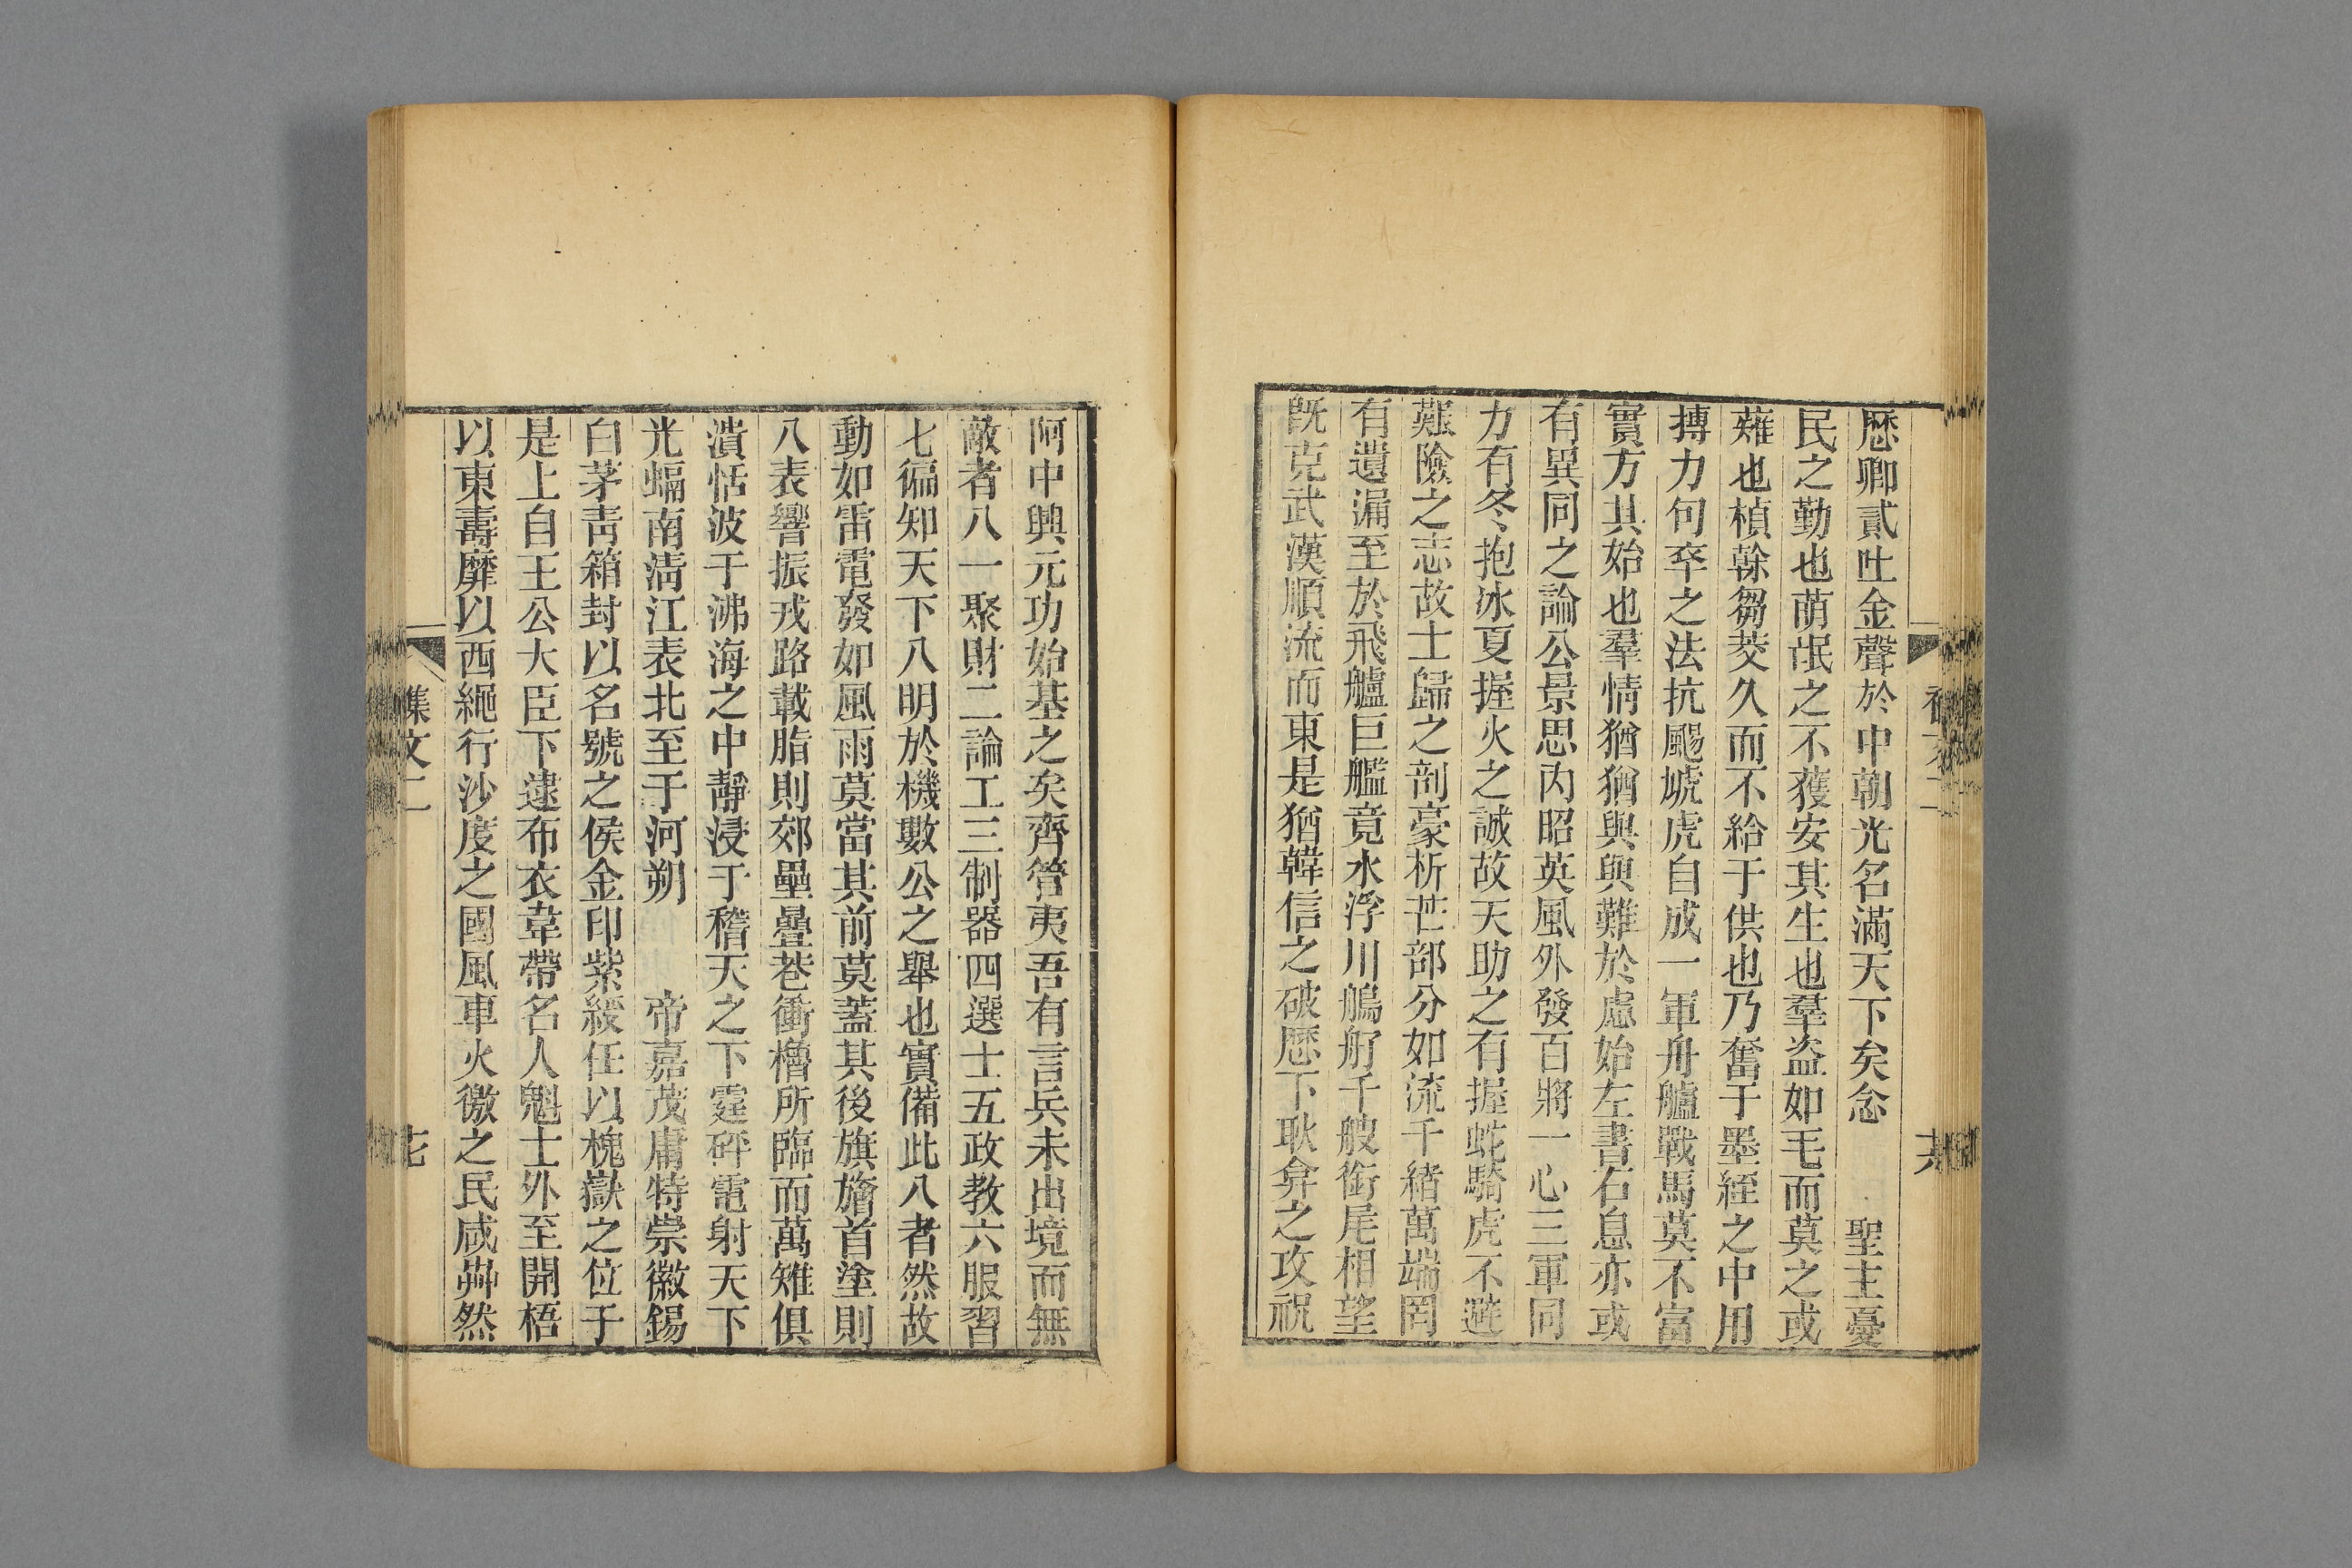 歷卿貳吐金聲於中朝光名滿天下矣念 聖主憂
民之勤也萌氓之不獲安其生也羣盜如毛而莫之或
薙也楨榦芻茭久而不給于供也乃奮于墨絰之中用
摶力句卒之法抗颺虓虎自成一軍舟艫戰馬莫不富
實方其始也羣情猶猶與與難於慮始左書右息亦或
有異同之論公景思內昭英風外發百將一心三軍同
力有冬抱冰夏握火之誠故天助之有握蛇騎虎不避
艱險之志故士歸之剖豪析芒部分如流千緒萬端罔
有遺漏至於飛艫巨艦竟水浮川鴅舸千艘銜尾相望
旣克武漢順流而東是猶韓信之破歷下耿弇之攻祝
阿中興元功始基之矣齊管夷吾有言兵未出境而無
敵者八一聚財二論工三制器四選士五政教六服習
七徧知天下八明於機數公之舉也實備此八者然故
動如雷電發如風雨莫當其前莫蓋其後旗旝首塗則
八表響振戎路載脂則郊壘疊巷衝櫓所臨而萬雉俱
潰恬波于沸海之中靜祲于稽天之下霆砰電射天下
光蝠南淸江表北至于河朔 帝嘉茂庸特崇徽錫
白茅靑箱封以名號之侯金印紫綬任以槐嶽之位于
是上自王公大臣下逮布衣韋帶名人魁士外至開梧
以東壽靡以西繩行沙度之國風車火徼之民咸茻然
集文二